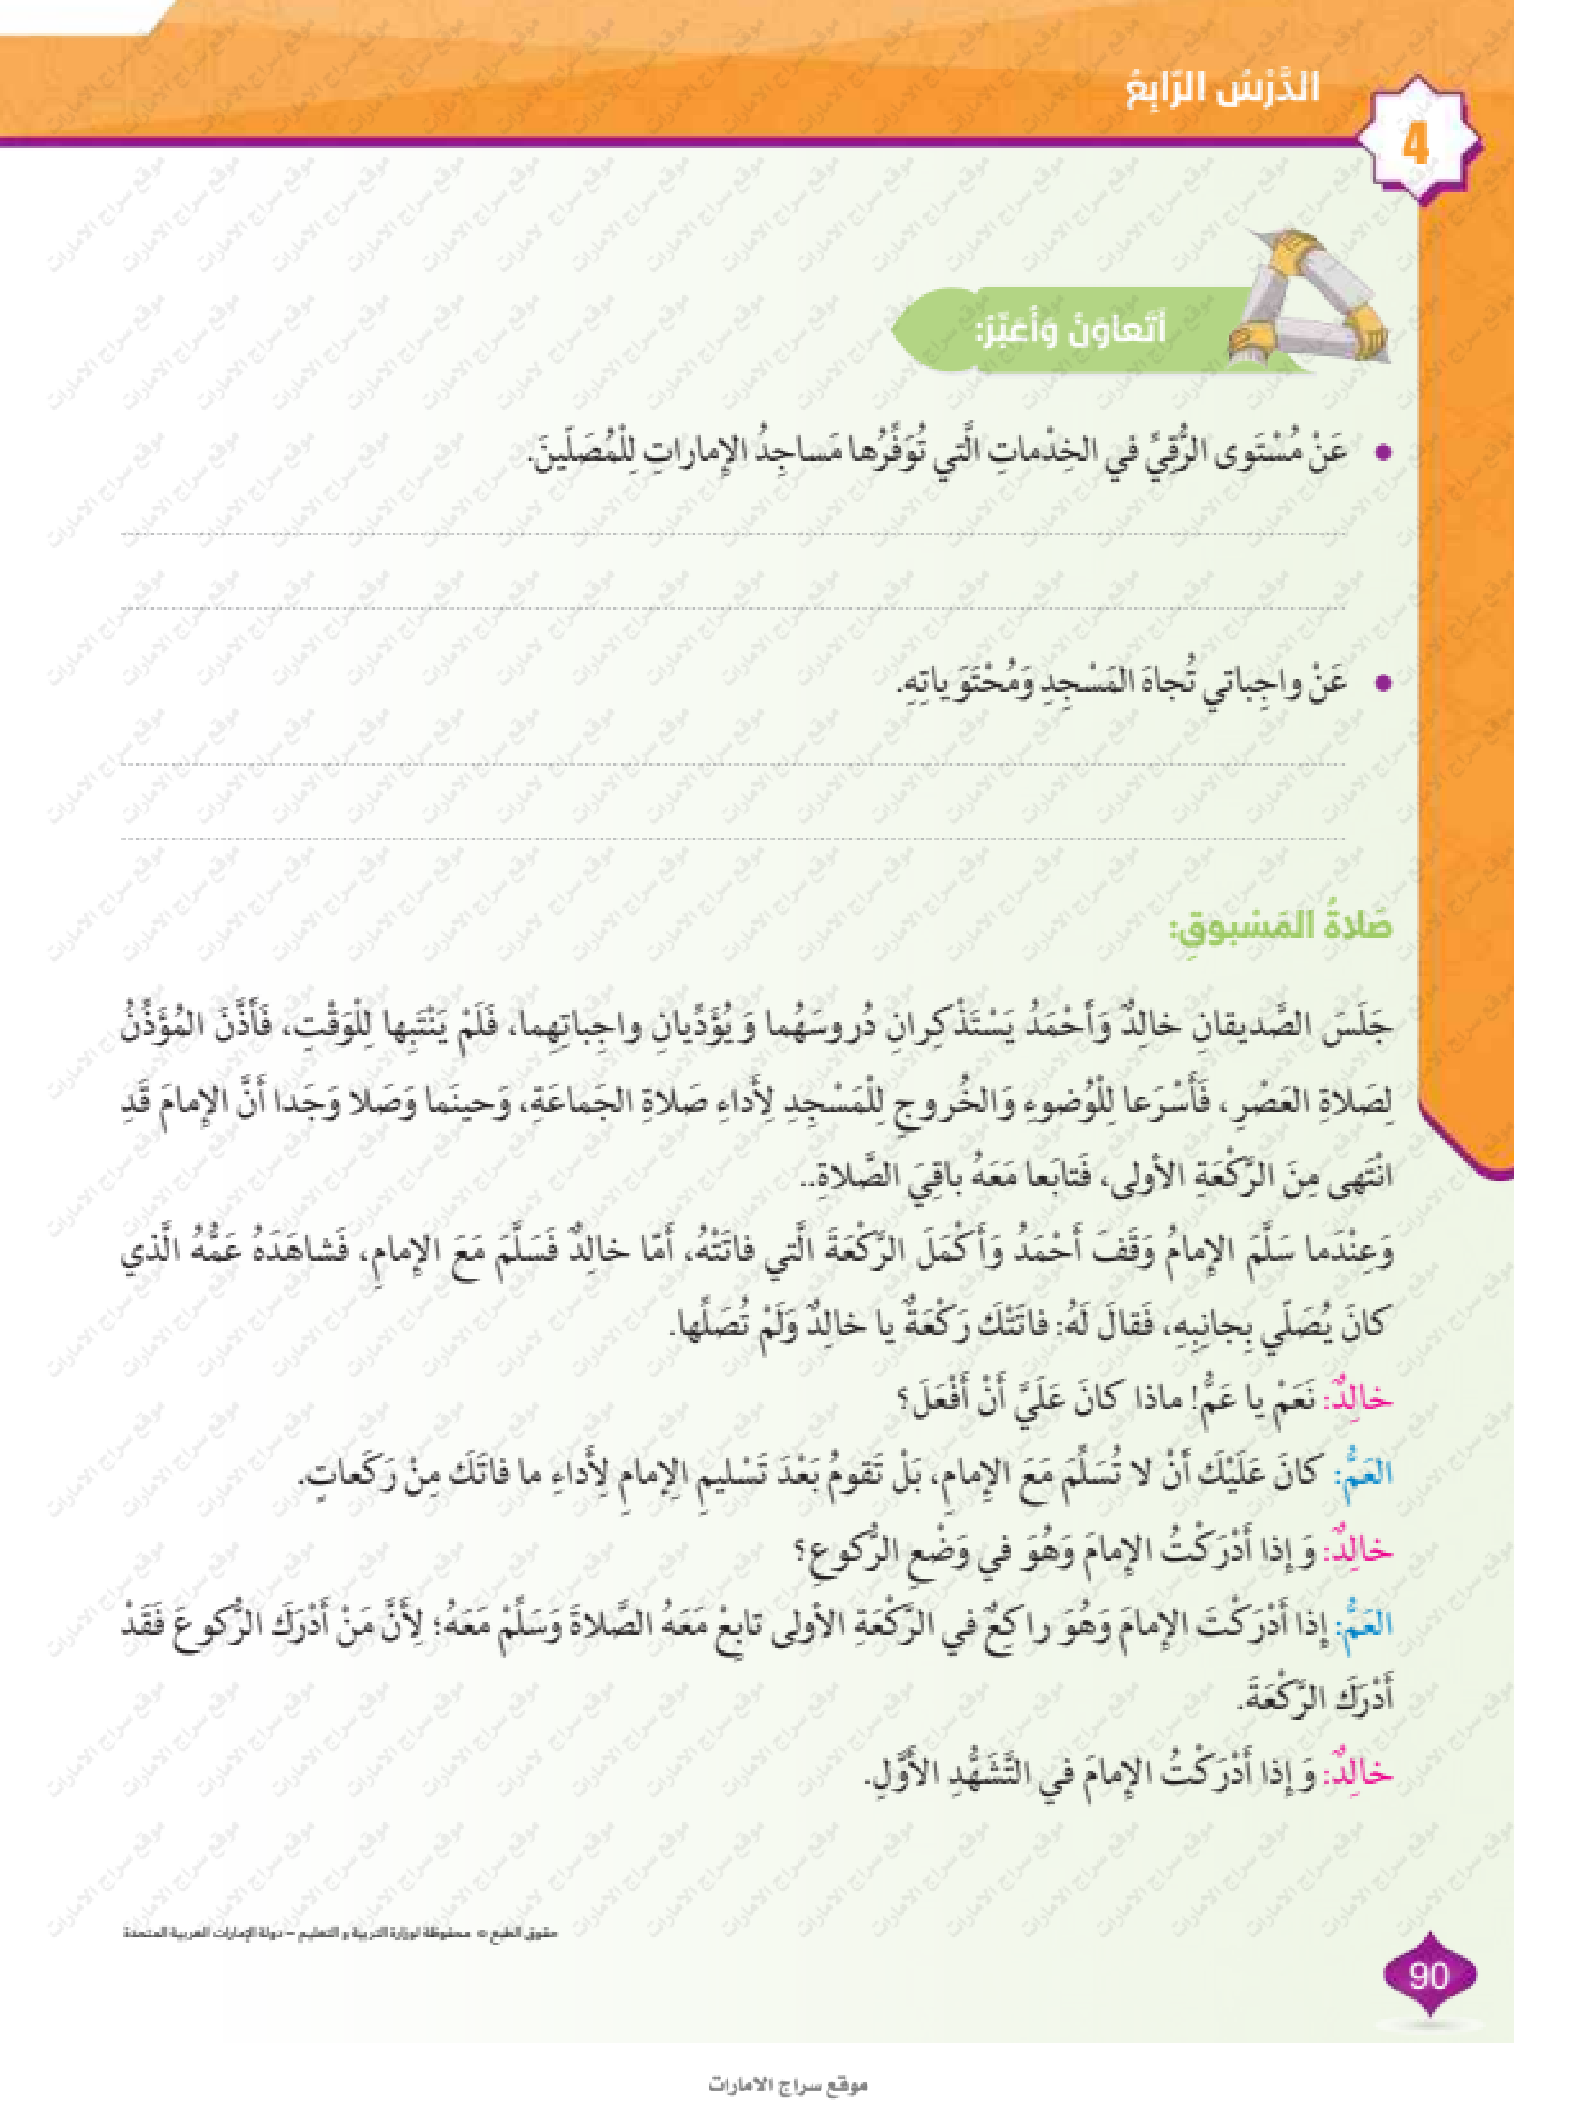 الدَّرْسُ الرّابِعُ
4
أَتَعاوَنُ وَأُعَبِّرُ:
• عَنْ مُسْتَوى الرُّقِيِّ في الخِدْماتِ الَّتي تُوَفِّرُها مَساجِدُ الإِماراتِ لِلْمُصَلّينَ.
• عَنْ واجِباتي تُجاهَ المَسْجِدِ وَمُحْتَوَياتِهِ.
صَلاةُ المَسْبوقِ:
جَلَسَ الصَّديقانِ خالِدٌ وَأَحْمَدُ يَسْتَذْكِرانِ دُروسَهُما وَيُؤَدِّيانِ واجِباتِهِما، فَلَمْ يَنْتَبِها لِلْوَقْتِ، فَأَذَّنَ المُؤَذِّنُ
لِصَلاةِ العَصْرِ، فَأَسْرَعا لِلْوُضوءِ وَالخُروجِ لِلْمَسْجِدِ لِأَداءِ صَلاةِ الجَماعَةِ، وَحينَما وَصَلا وَجَدا أَنَّ الإِمامَ قَدِ
انْتَهى مِنَ الرَّكْعَةِ الأولى، فَتابَعا مَعَهُ باقِيَ الصَّلاةِ..
وَعِنْدَما سَلَّمَ الإِمامُ وَقَفَ أَحْمَدُ وَأَكْمَلَ الرَّكْعَةَ الَّتي فاتَتْهُ، أَمّا خالِدٌ فَسَلَّمَ مَعَ الإِمامِ، فَشاهَدَهُ عَمُّهُ الَّذي
كانَ يُصَلّي بِجانِبِهِ، فَقالَ لَهُ: فاتَتْكَ رَكْعَةٌ يا خالِدٌ وَلَمْ تُصَلِّها.
خالِدٌ: نَعَمْ يا عَمُّ! ماذا كانَ عَلَيَّ أَنْ أَفْعَلَ؟
العَمُّ: كانَ عَلَيْكَ أَنْ لا تُسَلِّمَ مَعَ الإِمامِ، بَلْ تَقومُ بَعْدَ تَسْليمِ الإِمامِ لِأَداءِ ما فاتَكَ مِنْ رَكَعاتٍ.
خالِدٌ: وَإِذا أَدْرَكْتُ الإِمامَ وَهُوَ في وَضْعِ الرُّكوعِ؟
العَمُّ: إِذا أَدْرَكْتَ الإِمامَ وَهُوَ راكِعٌ في الرَّكْعَةِ الأولى تابِعْ مَعَهُ الصَّلاةَ وَسَلِّمْ مَعَهُ؛ لِأَنَّ مَنْ أَدْرَكَ الرُّكوعَ فَقَدْ
أَدْرَكَ الرَّكْعَةَ.
خالِدٌ: وَإِذا أَدْرَكْتُ الإِمامَ في التَّشَهُّدِ الأَوَّلِ.
حقوق الطبع © محفوظة لوزارة التربية و التعليم – دولة الإمارات العربية المتحدة
90
موقع سراج الامارات